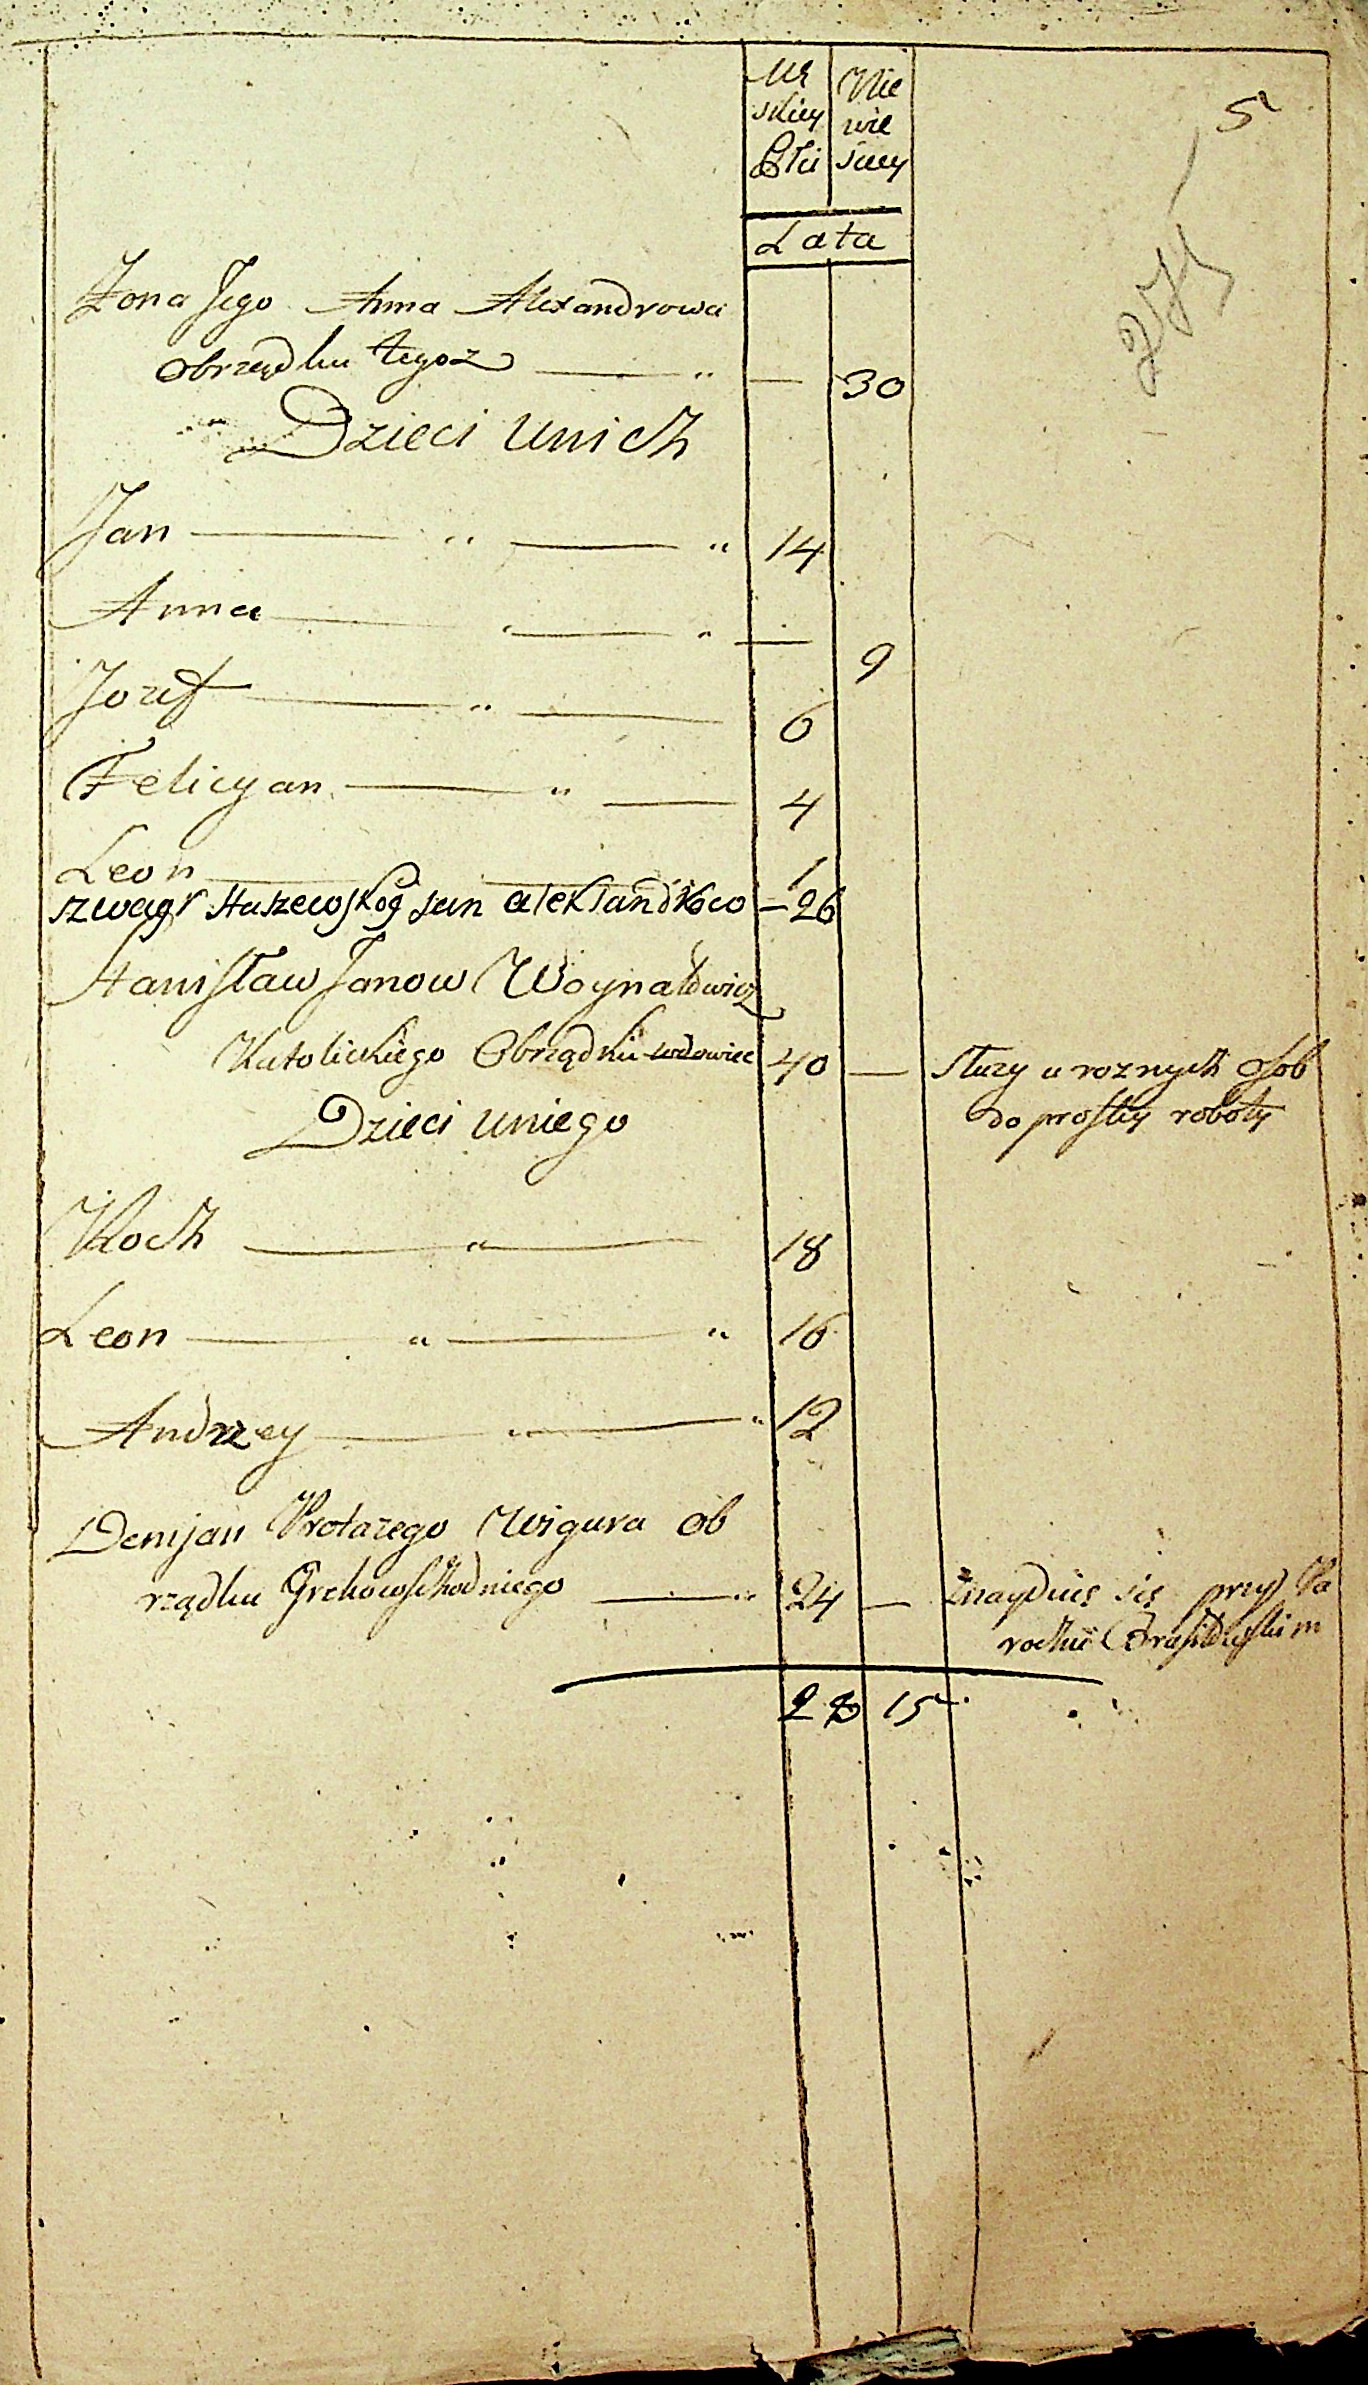 Mę Nie
skiey wie
Płciściey
5
Lata
Żona Jego Anna Alexandrowa
Obrządku tegoż — " — 30
Dzieci unich
Jan — " — " 14
Anna — " — " — 9
Jozef — " — 6
Felicyan — " — 4
Leon — 1
szwagr Staszewskog Jan alexandrow — 26
Stanisław Janow Woynałowicz
Katolickiego Obrządku wdowiec 40 — służy u roznych osob
do prostey roboty
Dzieci uniego
Roch — " — 18
Leon — " — " 16
Andrzey — " — " 12
Demjan Protazego Wigura Ob
rządku Grekowschodniego — " 24 — Znayduię się przy Pa
rochii
28 15